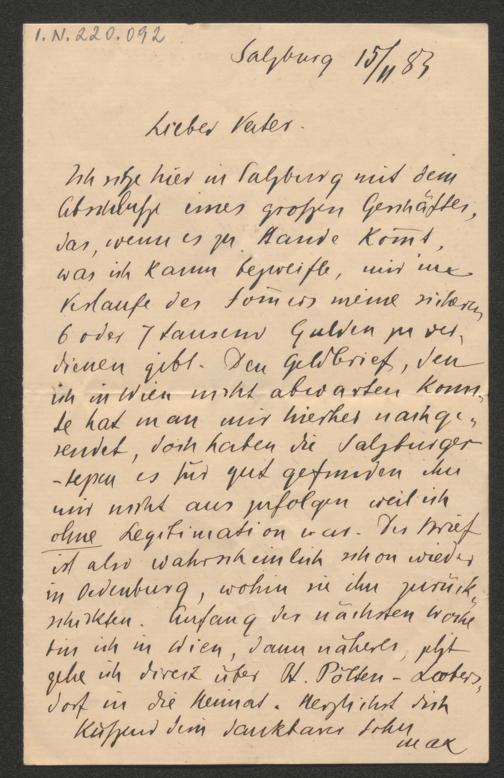 I.N. 220.092
Salzburg 15/II 83
Lieber Vater.
Ich sitze hier in Salzburg mit dem
Abschluße eines großen Geschäftes,
das, wenn es zu Stande kom̄t,
was ich kaum bezweifle, mir im
Verlaufe des Som̄ers meine sicheren
6 oder 7 tausend Gulden zu ver„
dienen gibt. Den Geldbrief, den
ich in Wien nicht abwarten konn„
te hat man mir hierher nachge„
sendet, doch haben die Salzburger
es für gut gefunden ihn
mir nicht auszufolgen weil ich
ohne Legitimation war. Der Brief
ist also wahrscheinlich schon wieder
in Oedenburg, wohin sie ihn zurück„
schickten. Anfang der nächsten Woche
bin ich in Wien, dann näheres, jetzt
gehe ich direct über St. Pölten - Loobers„
dorf in die Heimat. Herzlichst dich
küßend dein dankbarer Sohn
Max